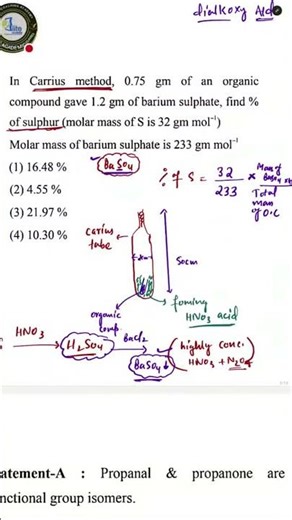 dialkoxy
In Carrius method, 0.75 gm of an organic
compound gave 1.2 gm of barium sulphate, find %
of sulphur (molar mass of S is 32 gm mol⁻¹)
Molar mass of barium sulphate is 233 gm mol⁻¹
(1) 16.48 %
(2) 4.55 %
(3) 21.97 %
(4) 10.30 %
BaSO4
% of S = 32/233 × Mass of BaSO4
Total mass of O.C
carius
tube
50cm
organic
comp.
foming
HNO3 acid
HNO3
H2SO4
BaCl2
BaSO4↓
highly conc.
HNO3 + N2O4
atement-A : Propanal & propanone are
nctional group isomers.